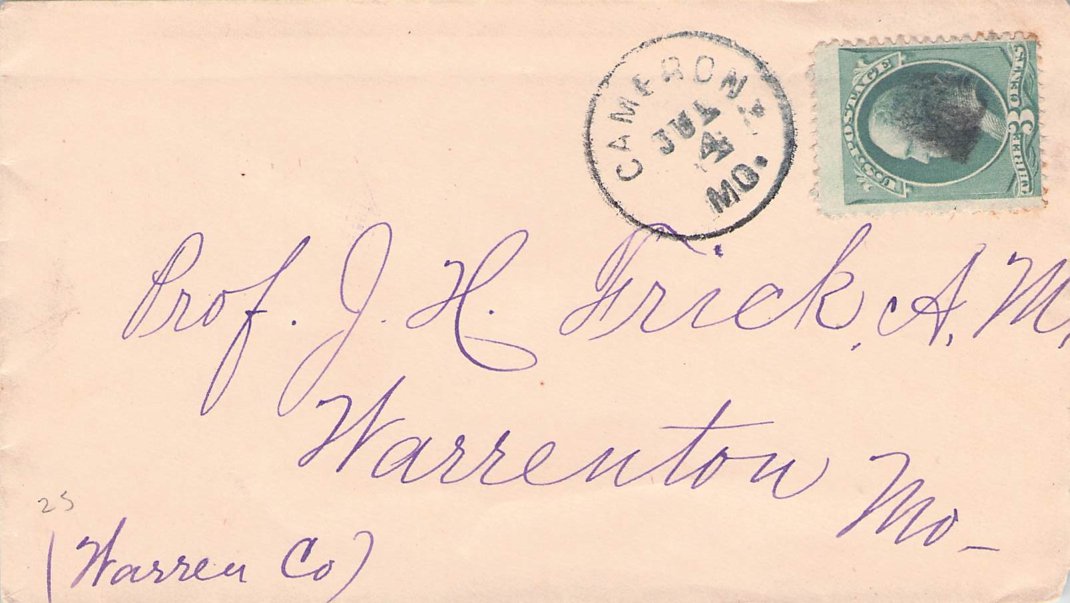 CAMERON,
JUL
4
MO.
U.S. POSTAGE
THREE 3 CENTS
Prof. J. H. Frick, A. M.
Warrenton
Mo-
25
(Warren Co)